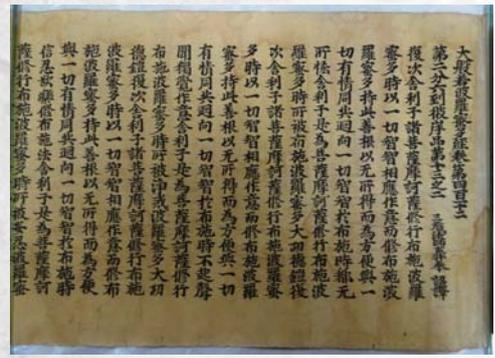 大般若波羅蜜多經卷第四百十二
第二分六到彼岸品第十三之二 三藏法師奉 詔譯
復次舍利子諸菩薩摩訶薩修行布施波羅
蜜多時以一切智智相應作意而修布施波
羅蜜多持此善根以无所得而為方便與一
切有情同共迴向一切智智於布施時都无
所悋舍利子是為菩薩摩訶薩修行布施波
羅蜜多時所被布施波羅蜜多大功德鎧復
次舍利子諸菩薩摩訶薩修行布施波羅蜜
多時以一切智智相應作意而修布施波羅
蜜多持此善根以无所得而為方便與一切
有情同共迴向一切智智於布施時不起聲
聞獨覺作意舍利子是為菩薩摩訶薩修行
布施波羅蜜多時所被淨戒波羅蜜多大功
德鎧復次舍利子諸菩薩摩訶薩修行布施
波羅蜜多時以一切智智相應作意而修布
施波羅蜜多持此善根以无所得而為方便
與一切有情同共迴向一切智智於布施時
信忍欲樂修布施法舍利子是為菩薩摩訶
薩修行布施波羅蜜多時所被安忍波羅蜜